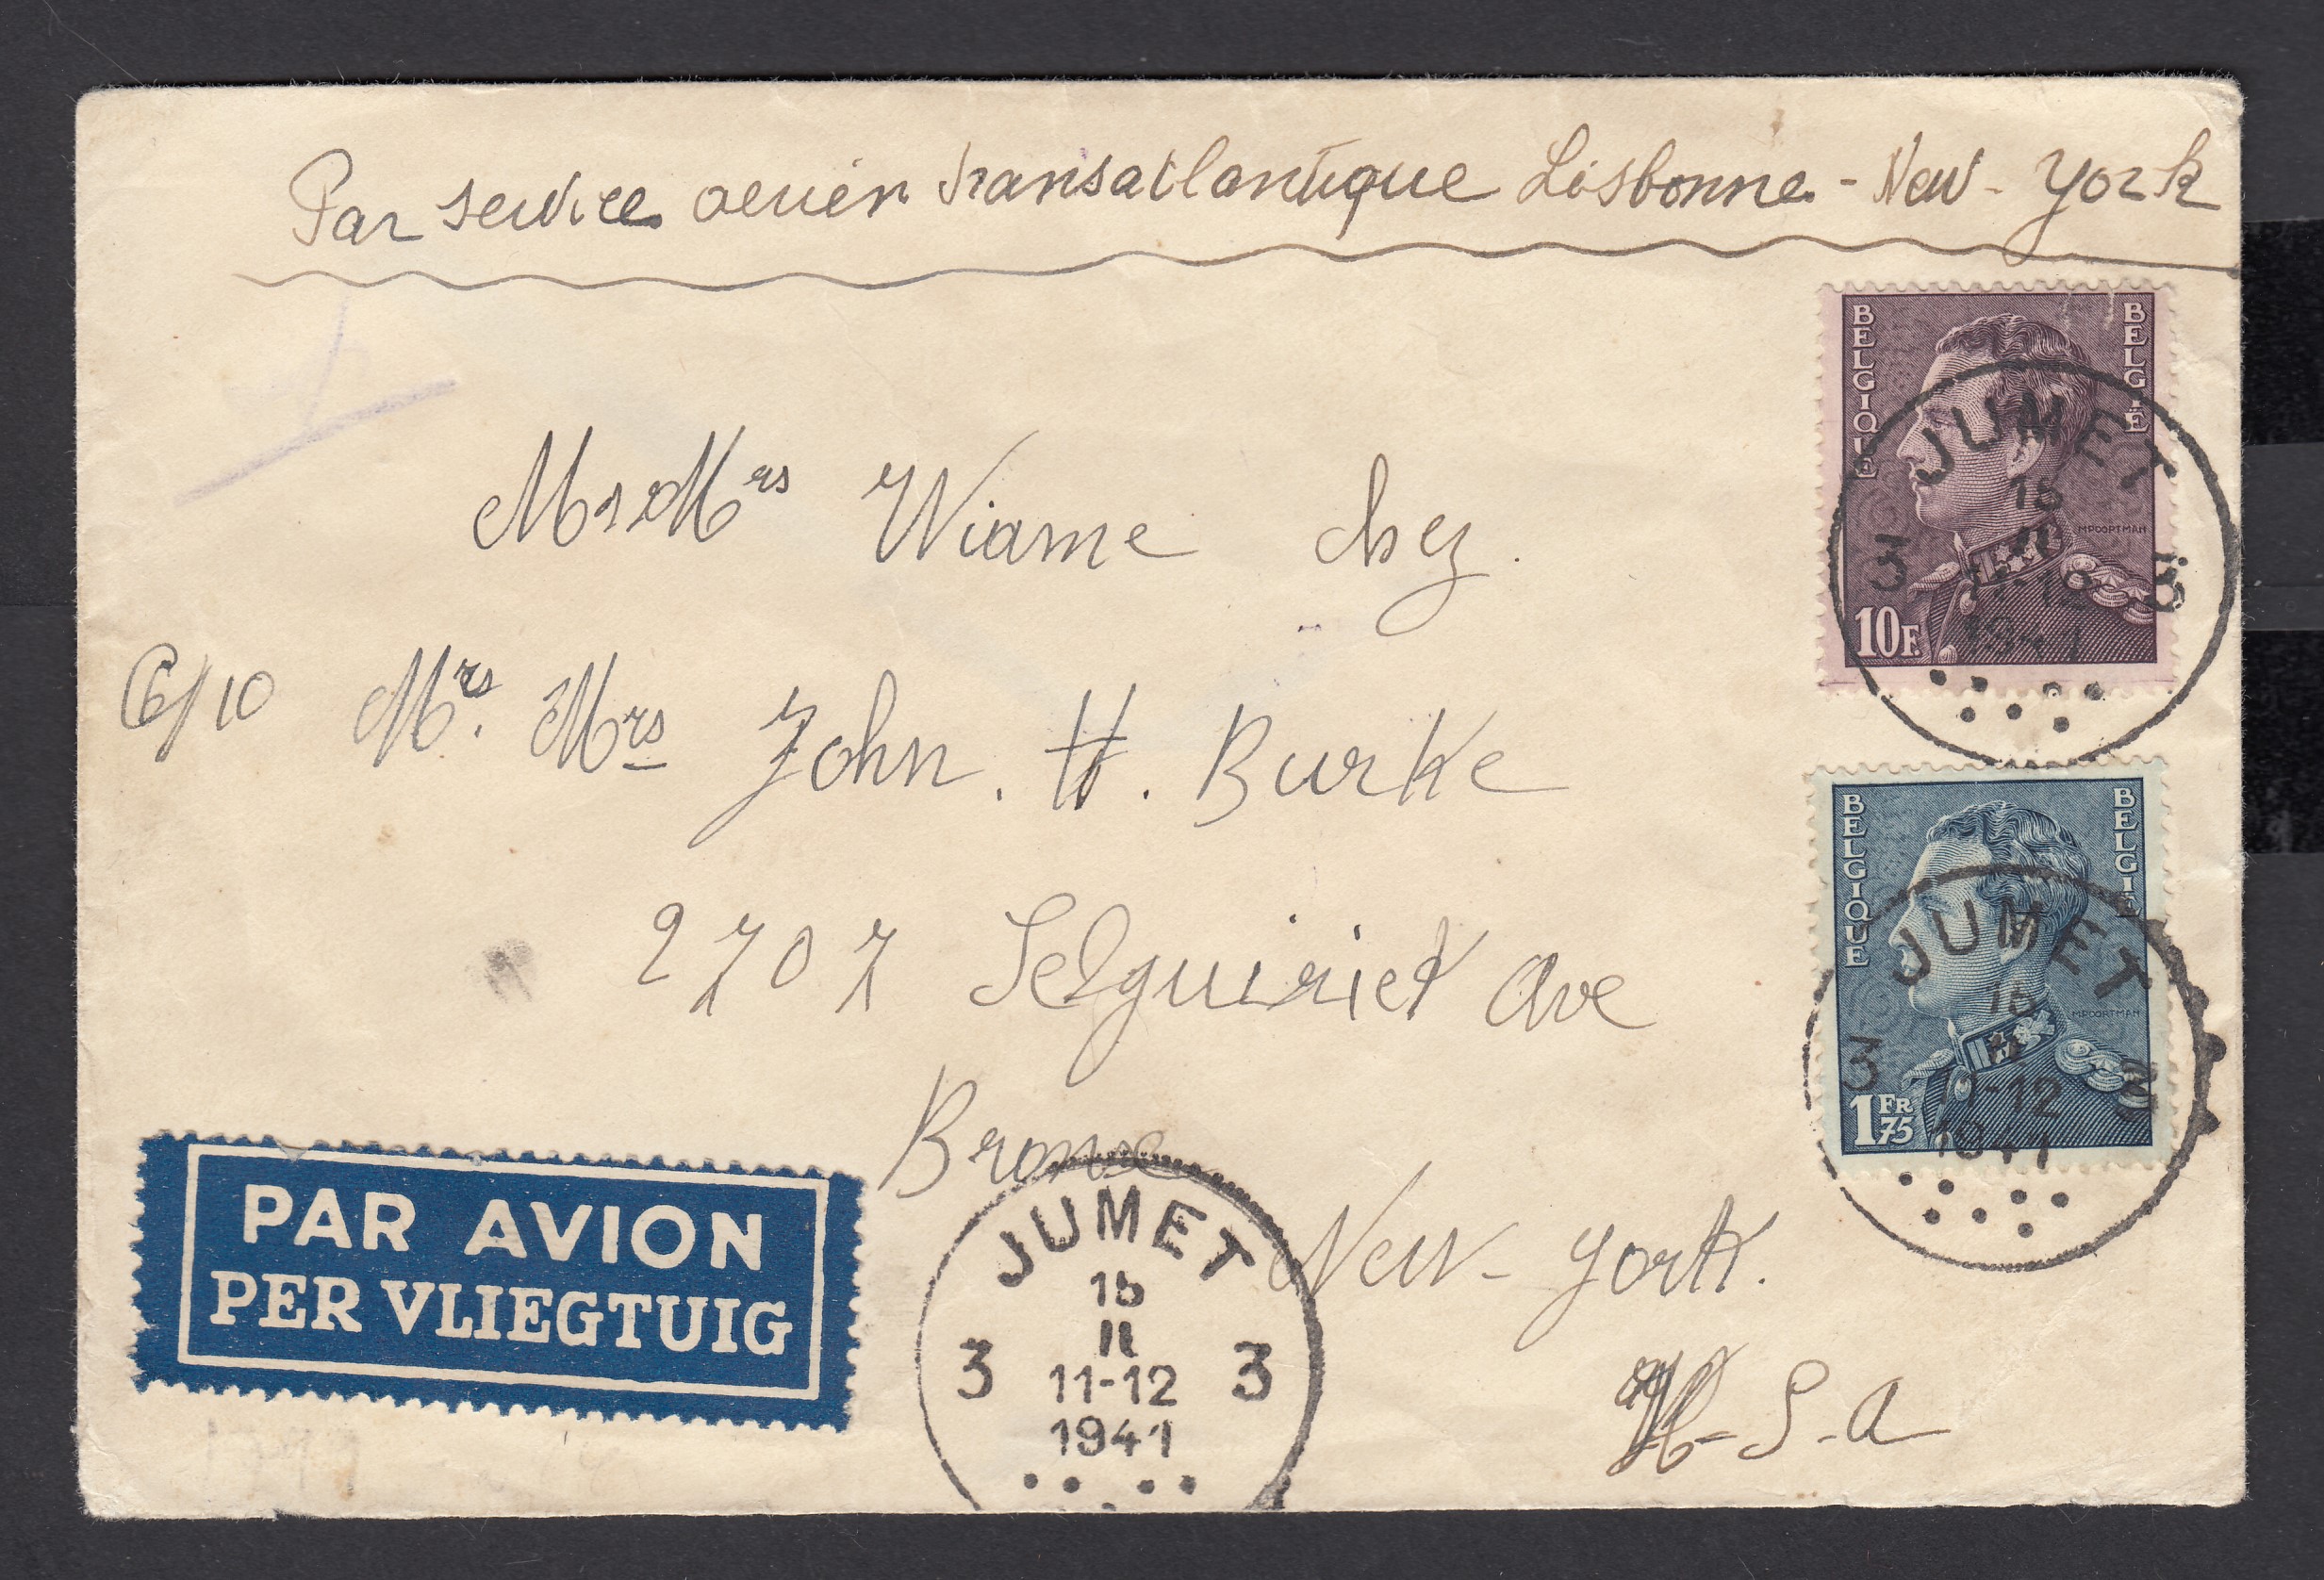 Par service aerien transatlantique Lisbonne - New - York
BELGIQUE
BELGIË
MPOORTMAN
10F.
JUMET
15
II
11-12
1941
3
Mr & Mrs Wiame chez
C/10 Mrs. Mrs John. H. Burke
BELGIQUE
BELGIË
MPOORTMAN
1 FR 75
JUMET
15
II
11-12
1941
3 3
2707 Selguiriet Ave
Bronxe
New - York.
U - S - A
PAR AVION
PER VLIEGTUIG
JUMET
15
II
3 11-12 3
1941